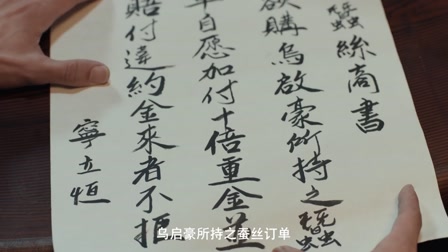 蠶絲商書
欲購烏啟豪所持之蠶
自愿加付十倍重金並
賠付違約金來者不拒
寧立恒
乌启豪所持之蚕丝订单